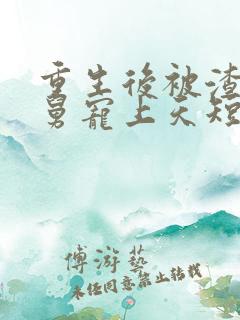 重生後被渣
舅寵上天短
傅游藝
未任同意禁止轉載